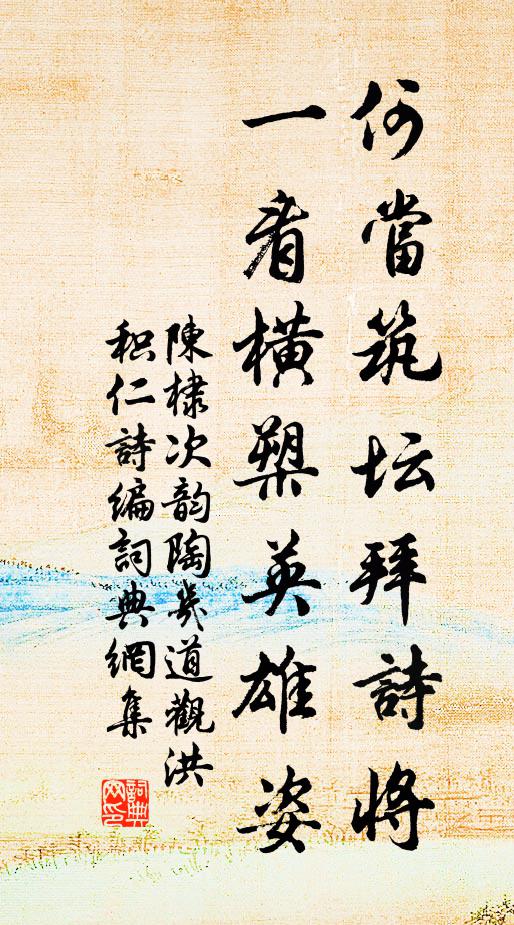 何當筑坛拜詩將
一看横槊英雄姿
陳棣次韵陶幾道觀洪
积仁詩编詞典網集
詞典
网印